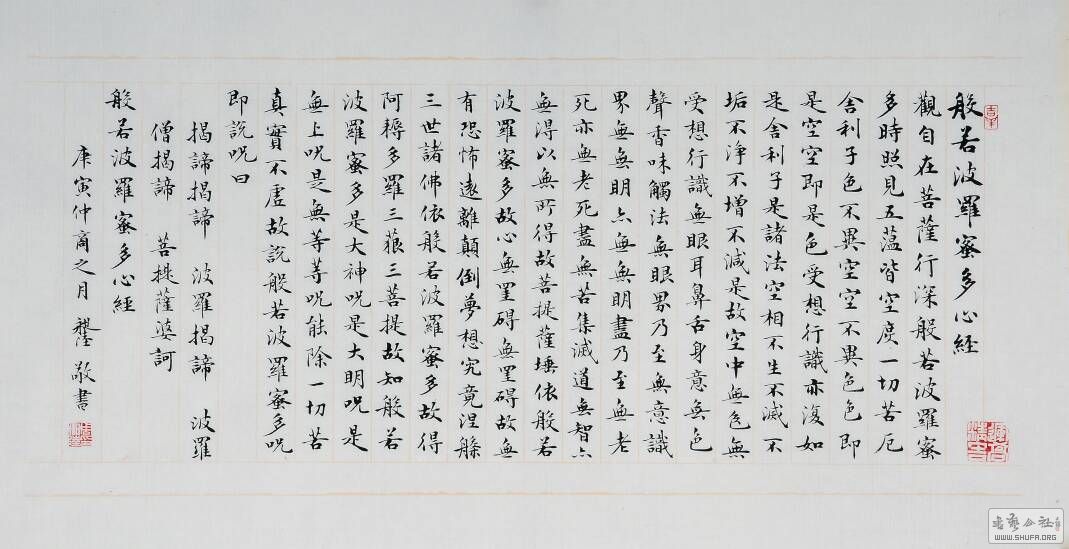 般若波羅蜜多心經
觀自在菩薩行深般若波羅蜜
多時照見五蕴皆空度一切苦厄
舍利子色不異空空不異色色即
是空空即是色受想行識亦復如
是舍利子是諸法空相不生不滅不
垢不浄不增不減是故空中無色無
受想行識無眼耳鼻舌身意無色
聲香味觸法無眼界乃至無意識
界無無明亦無無明盡乃至無老
死亦無老死盡無苦集滅道無智亦
無得以無所得故菩提薩埵依般若
波羅蜜多故心無罣碍無罣碍故無
有恐怖遠離顛倒夢想究竟涅槃
三世諸佛依般若波羅蜜多故得
阿耨多羅三藐三菩提故知般若
波羅蜜多是大神呪是大明呪是
無上呪是無等等呪能除一切苦
真實不虛故說般若波羅蜜多呪
即說呪曰
揭諦揭諦 波羅揭諦 波羅
僧揭諦 菩提薩婆訶
般若波羅蜜多心經
庚寅仲商之月 敬書
書藝公社
WWW.SHUFA.ORG